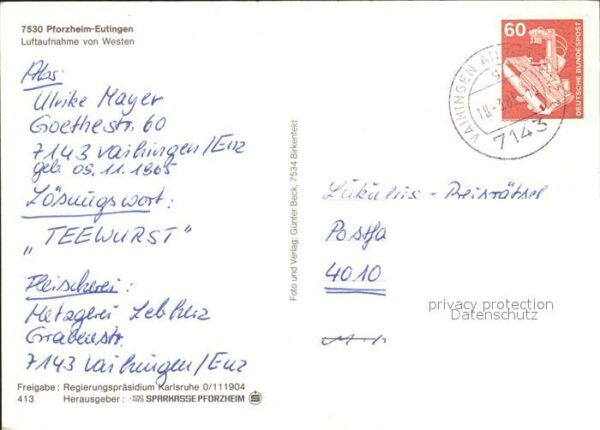 7530 Pforzheim-Eutingen
Luftaufnahme von Westen
Abs:
Ulrike Mayer
Goethestr. 60
7143 Vaihingen/Enz
geb. 09.11.1965
Lösungswort:
"TEEWURST"
Fleischerei:
Metzgerei
Grabenstr.
7143 Vaihingen/Enz
Freigabe: Regierungspräsidium Karlsruhe 0/111904
413 Herausgeber: SPARKASSE PFORZHEIM
Foto und Verlag: Günter Beck, 7534 Birkenfeld
60
DEUTSCHE BUNDESPOST
VAIHINGEN AN
7143
Lukullus-Preisrätsel
Postfa
4010
privacy protection
Datenschutz